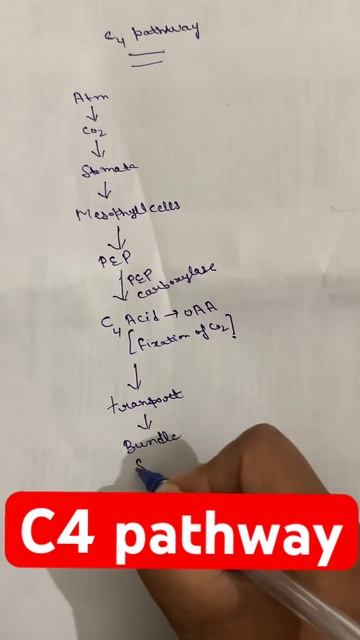 C4 pathway
Atm
↓
CO2
↓
Stomata
↓
Mesophyll cells
↓
PEP
↓ PEP carboxylase
C4 Acid → OAA
[fixation of CO2]
↓
transport
↓
Bundle
S
C4 pathway